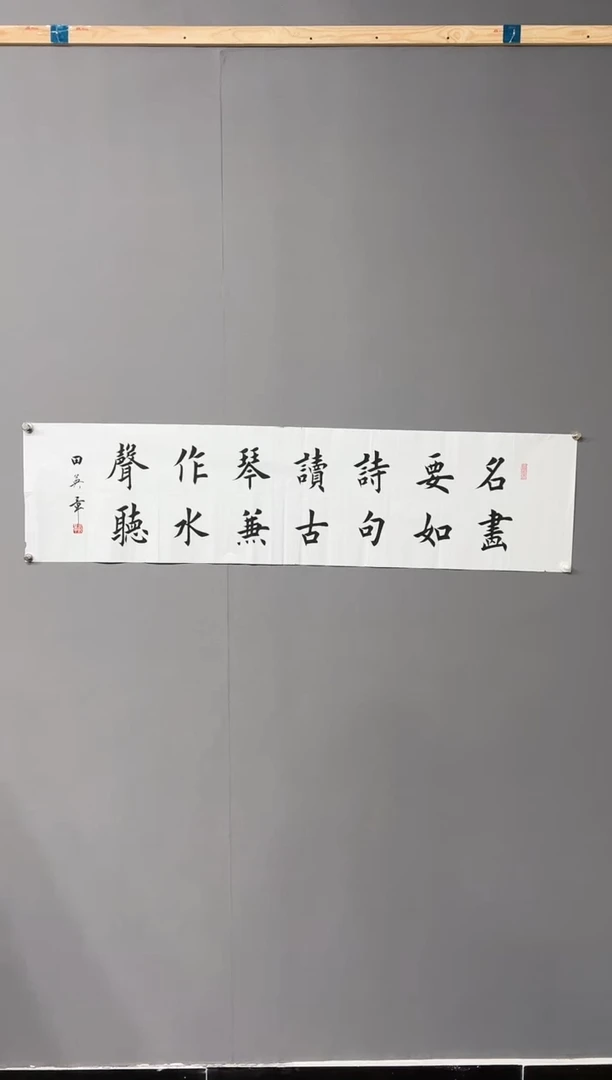 名畫
要如
詩句
讀古
琴蒹
作水
聲聽
田英章